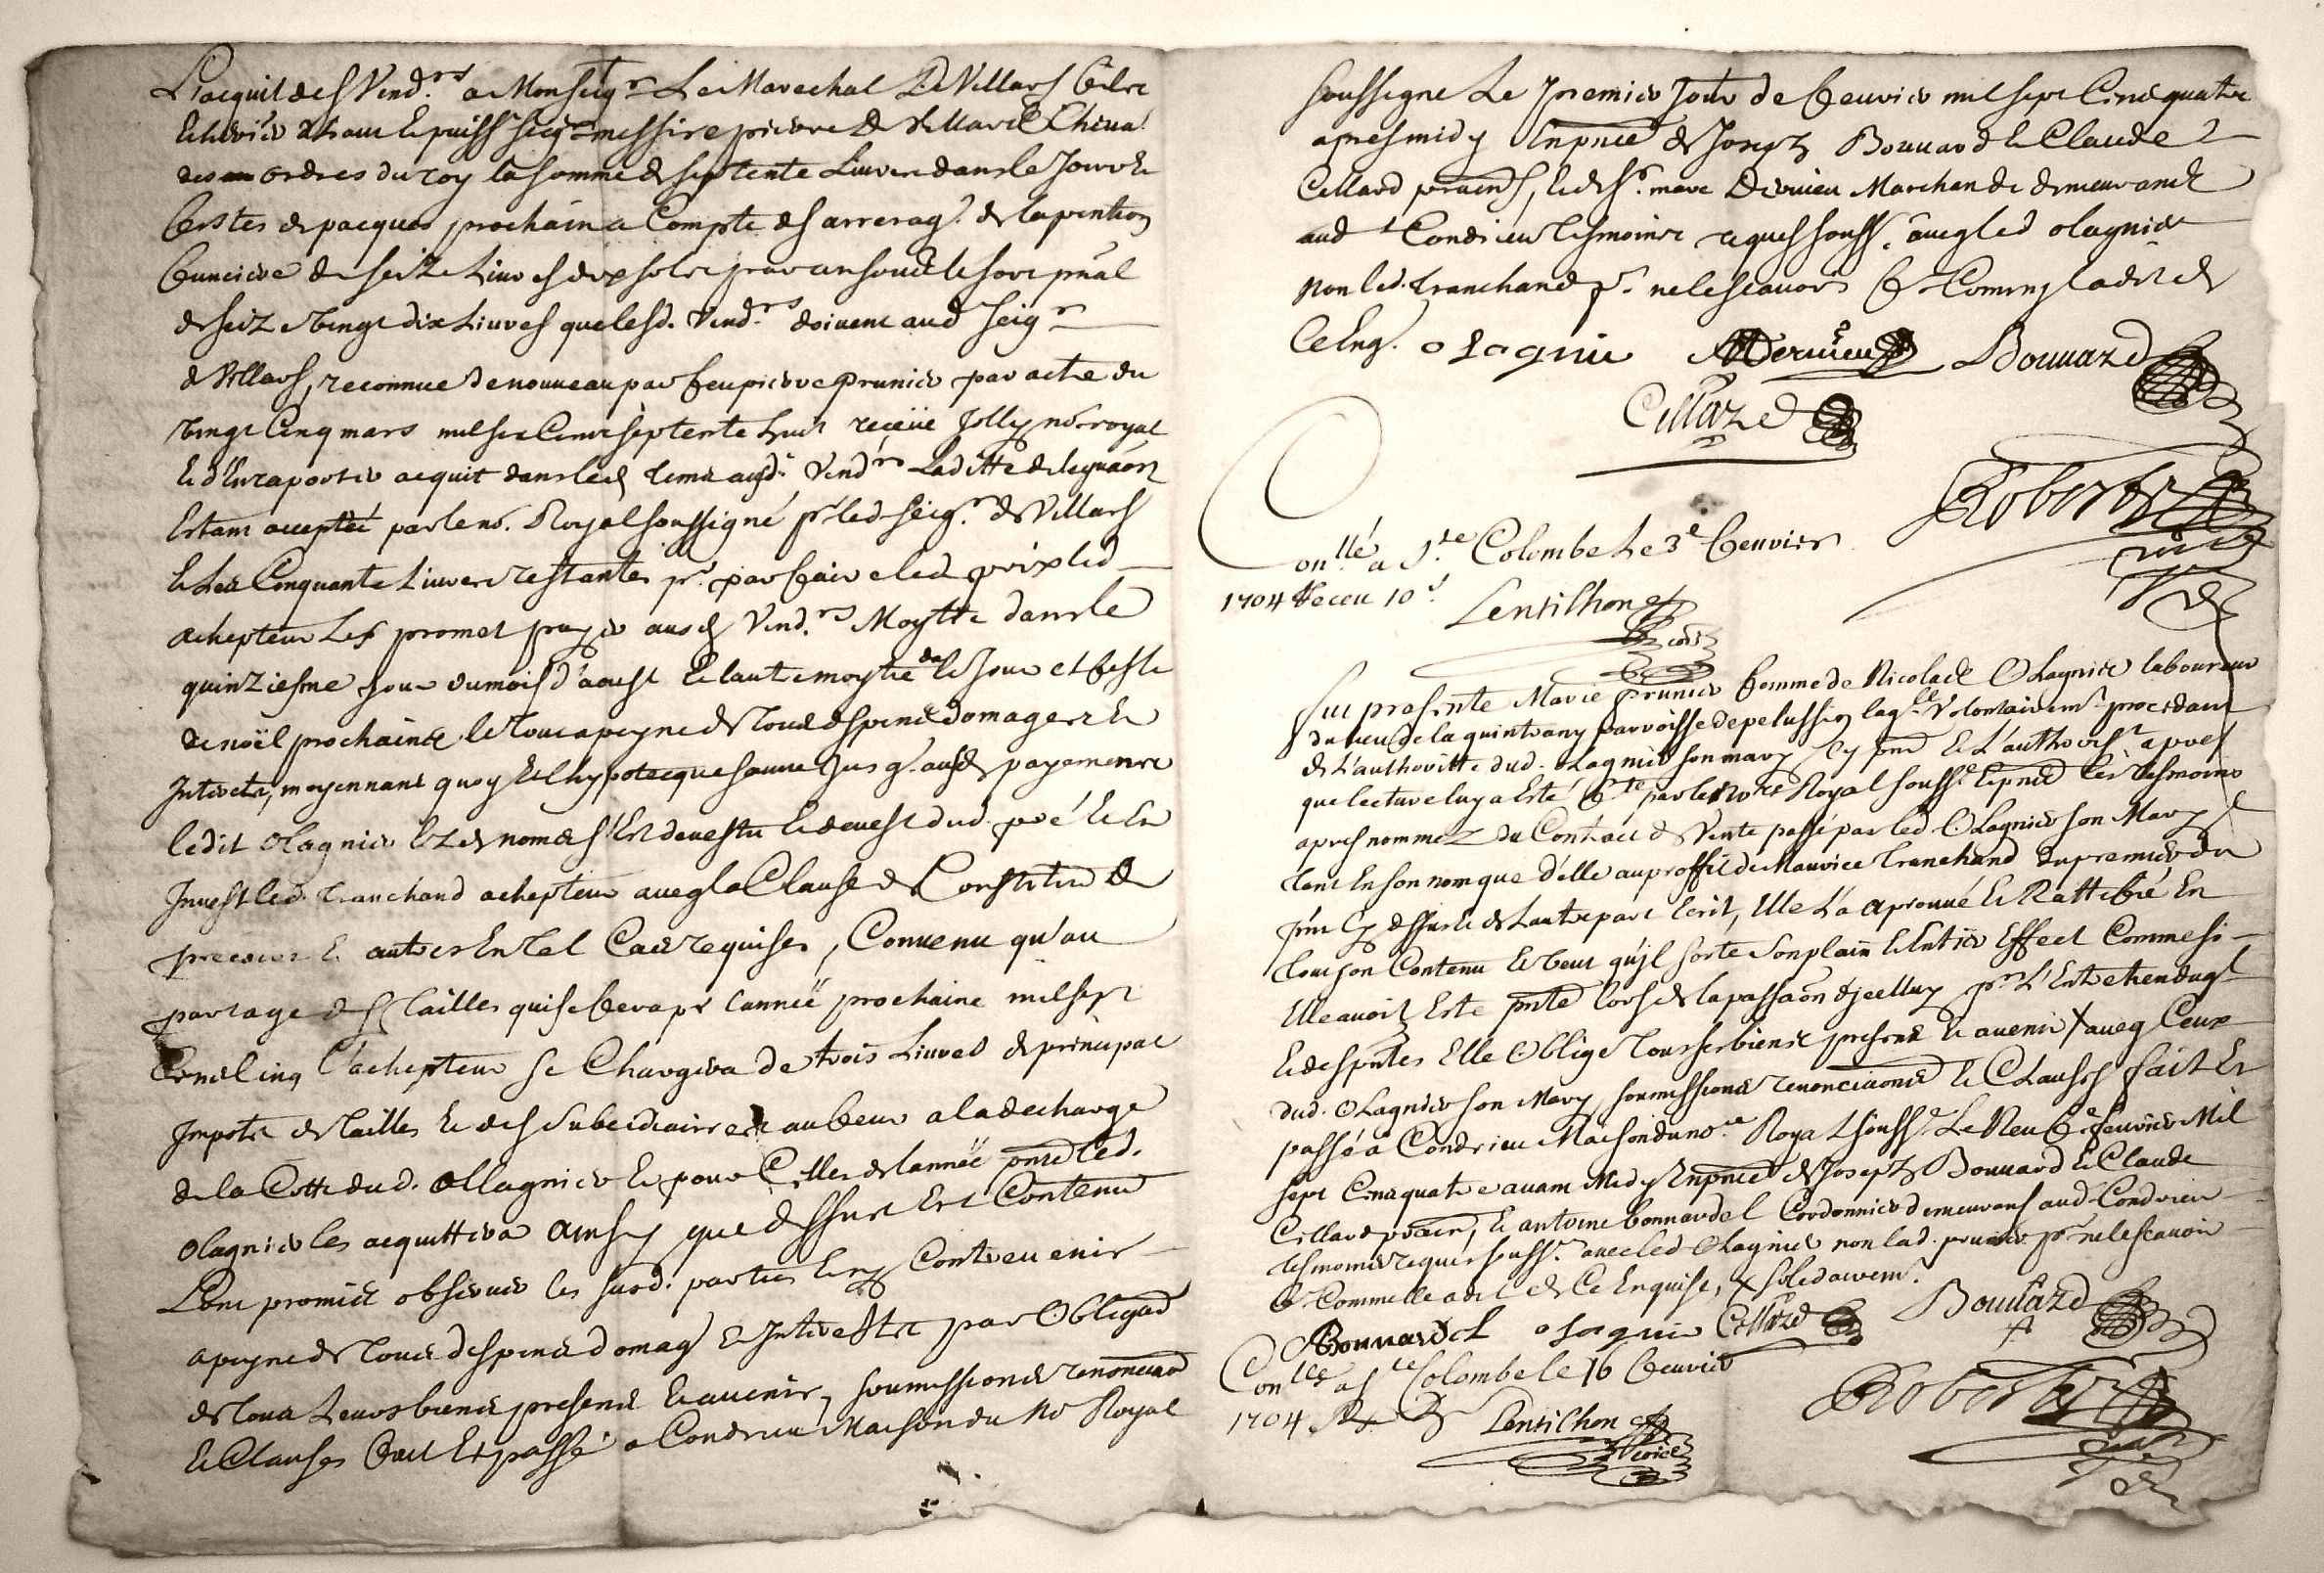 L'acquit desd Vend.rs a Monseig.r Le Marechal De Villars
de haut et puiss.t seig.r messire pierre De Villars Cheva.
des ordres du roy la somme de septente Livres dans le Jour et
festes de pacques prochain a Compte des arrerag.s de la pention
fonciere de seize Livres dix sols par an sous le sort pnal
de seize vingt dix Livres que lesd. Vend.rs doivent aud Seig.r
de Villars, reconnue de nouveau par feu pierre prunier par acte du
vingt Cinq mars mil six Cent septente huit receüe Jolly no.re royal
et d'En raporter acquit dans led temps ausd. Vend.rs Laditte delegaon
Estant acceptée par le no.re Royal soussigné p.r led Seig.r de Villars
et Les Cinquante Livres restantes p.r parfaire led prix led
achepteur Les promet payer ausd Vend.rs Moytié dans le
quinziesme jour du mois d'aoust et l'autre moytié au le Jour et feste
de noël prochaine le tout a peyne de tous despens domages et
Interets, moyennant quoy et l'hypotecque sauve jusq. ausd payements
ledit Olagnier Ez d noms s'Est devestu et devest dud. pré et En
Invest led. Tranchand achepteur aveq la Clause de Constitut de
precaire et autres En tel Cas requises, Convenu qu'au
partage des tailles qui se fera p.r l'année prochaine mil sept
Cent Cinq l'achepteur se Chargera de trois Livres de principal
Impots de tailles et des Subcidiaires au feur a la decharge
de la Cotte dud. Ollagnier et pour Celles de l'année pnte led.
Olagnier les acquittera Ainsy que dessus Est Contenu
L'ont promis observer les susd. parties et ny Contrevenir
a peyne de tous despens domag et Interests par Obligaon
de tous Leurs biens presens et avenir, soumissions renonciaons
et Clauses Fait Et passé a Condrieu Maison du No.re Royal
soussigne Le premier Jour de fevrier mil sept Cens quatre
apres midy En pnce de Joseph Bouvard et Claude
Cellard praciens, et de S.r marc Dervieu Marchand demeurants
aud Condrieu tesmoins requis souss. aveq led olagnier
non led. tranchand p.r ne le scavoir Comm'il a dit de
Ce Enq. olagnie MDervieu Bouvard
Cellard
Roberdet
Con.llé a S.te Colombe Le 3e fevrier
1704 Receu 10 s.
Lentilhon
Fut presente Marie prunier femme de Nicolas Olagnier laboureur
du lieu de la quintrany parroisse de pelussin laq.lle Volontairem.t procedant
de L'authoritte dud. Olagnier son mary Cy pnt et L'authoris.t apres
que lecture luy a Esté f.te par le No.re Royal souss.é Et pnce les tesmoins
apres nommez du Contract de Vente passé par led Olagnier son Mary
tant En son nom que d'elle au proffit de Maurice Tranchand du premier du
pnt Cy dessus et de l'autre part Ecrit, Elle l'a aprouvé et Rattifié En
tout son Contenu et veut qu'il sorte son plain et Entier Effect Comme si
Elle avoit Esté pnte lors de la passaon d'jcelluy
et des pntes Elle Oblige tous ses biens presens et avenir X aveq Ceux
dud. Olagnier son Mary, soumissions renonciaons et Clauses fait Et
passé a Condrieu Maison du no.re Royal souss.é Le Neuf.e fevrier Mil
sept Cens quatre avant Midy En pnce de Joseph Bouvard et Claude
Cellard praciens, et antoine bonnardel Cordonnier demeurans aud Condrieu
tesmoins requis souss. avec led Olagnier non lad. prunier p.r ne le scavoir
Comm'elle a dit de Ce Enquise, X solidairem.t
Bonnardel olagnie Cellard Bouvard
Con.llé a S.te Colombe le 16 fevrier
1704
Lentilhon
Roberdet